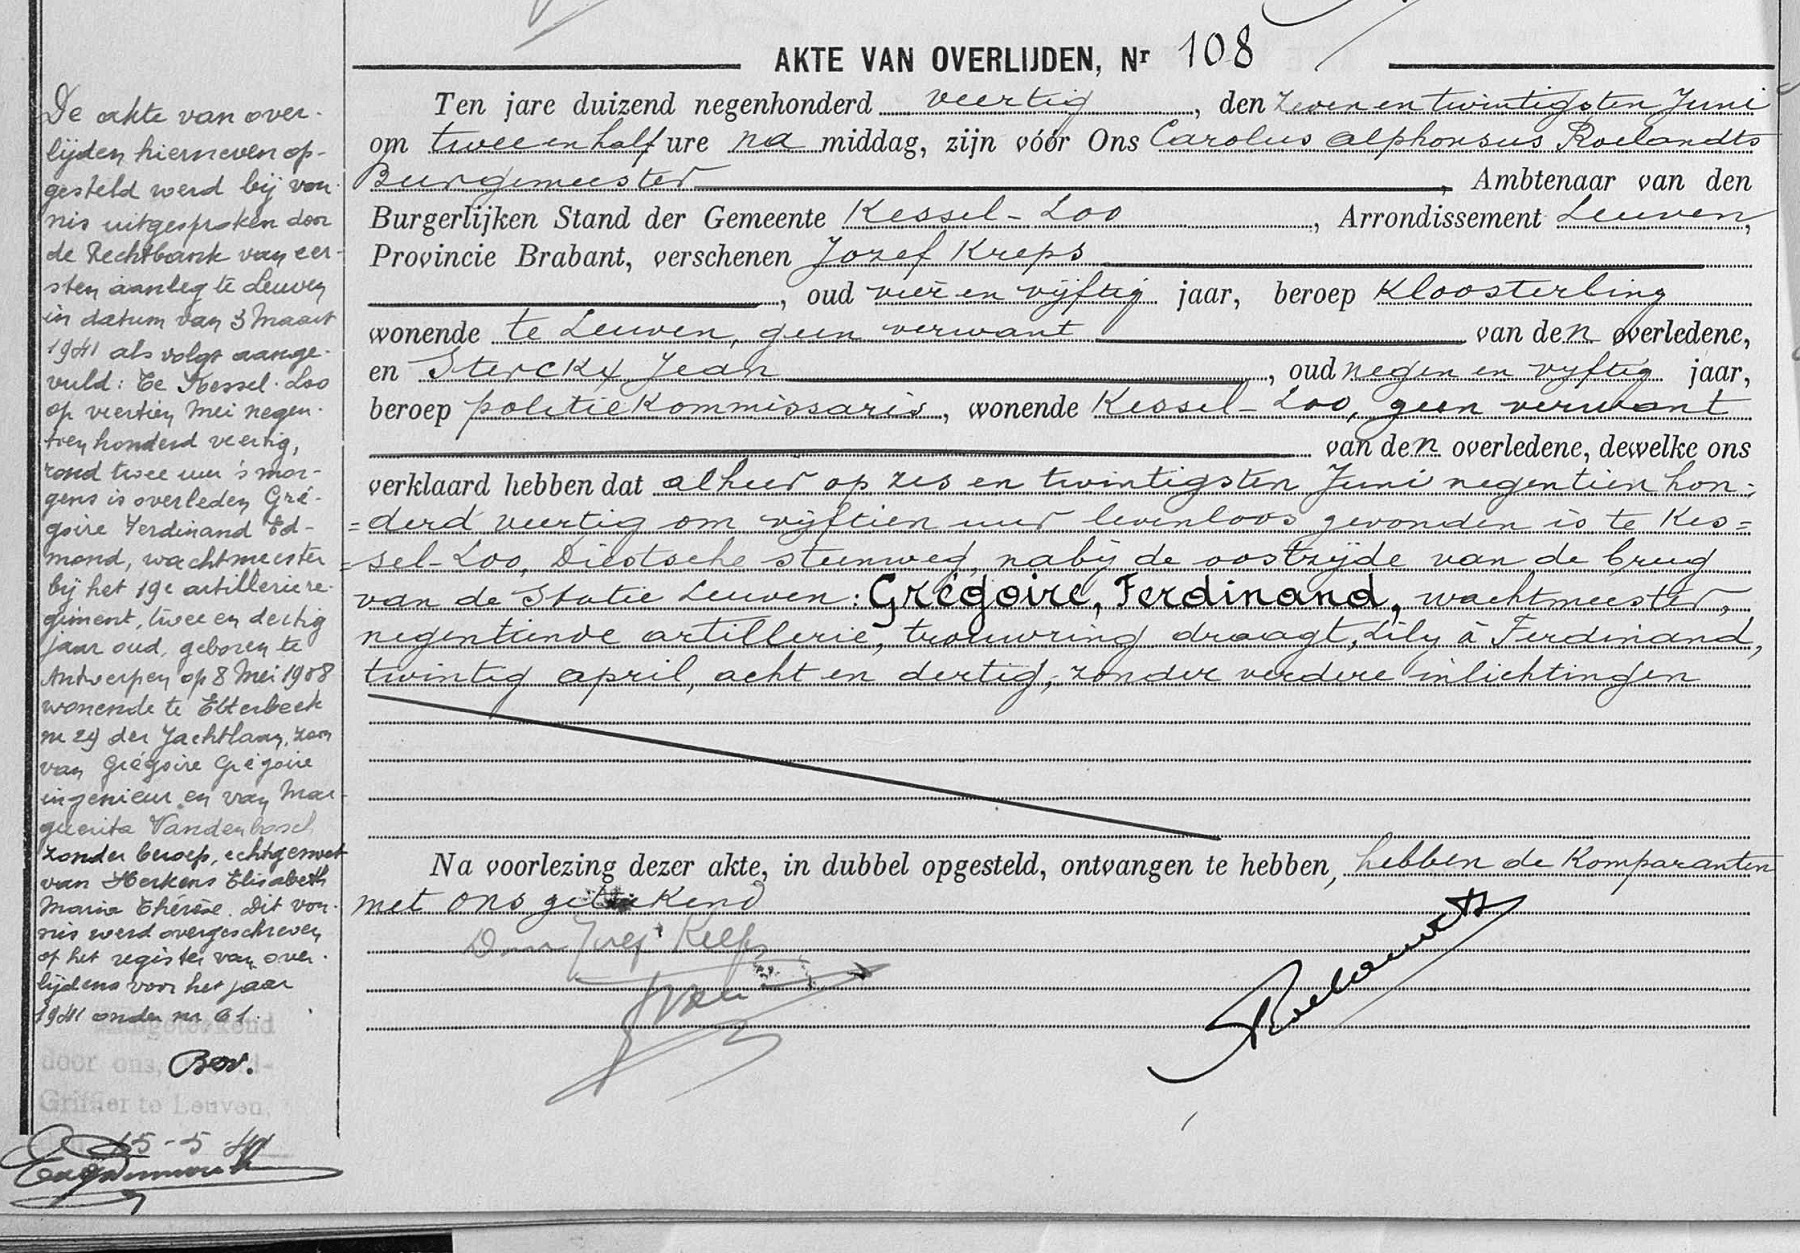 De akte van over-
lijden hierneven op-
gesteld werd bij von-
nis uitgesproken door
de Rechtbank van eer-
sten aanleg te Leuven
in datum van 3 Maart
1941 als volgt aange-
vuld: Te Kessel-Loo
op veertien Mei negen-
tien honderd veertig,
rond twee uur 's mor-
gens is overleden Gré-
goire Ferdinand Ed-
mond, wachtmeester
bij het 19e artileriere-
giment, twee en dertig
jaar oud, geboren te
Antwerpen op 8 Mei 1908
wonende te Etterbeek
nr 29 der Jachtlaan, zoon
van Grégoire Grégoire
ingenieur en van Mar-
guerita Vandenbosch
zonder beroep, echtgenoot
van Herkens Elisabeth
Maria Thérèse. Dit von-
nis werd overgeschreven
op het register van over-
lijdens voor het jaar
1941 onder nr 61.
door ons,
Griffier te Leuven,
15-5-41
AKTE VAN OVERLIJDEN, Nr 108
Ten jare duizend negenhonderd veertig, den zeven en twintigsten Juni
om twee en half ure na middag, zijn vóór Ons Carolus Alphonsus Roelandts
Burgemeester, Ambtenaar van den
Burgerlijken Stand der Gemeente Kessel-Loo, Arrondissement Leuven,
Provincie Brabant, verschenen Jozef Kreps
, oud vier en vijftig jaar, beroep Kloosterling
wonende te Leuven, geen verwant van den overledene,
en Sterckx Jean, oud negen en vyftig jaar,
beroep politiekommissaris, wonende Kessel-Loo, geen verwant
van den overledene, dewelke ons
verklaard hebben dat alhier op zes en twintigsten Juni negentien hon-
=derd veertig om vijftien uur levenloos gevonden is te Kes=
=sel-Loo, Diestsche steenweg, nabij de oostzijde van de brug
van de Statie Leuven: Grégoire, Ferdinand, wachtmeester,
negentiende artillerie, trouwring draagt, Lily à Ferdinand,
twintig april, acht en dertig, zonder verdere inlichtingen
Na voorlezing dezer akte, in dubbel opgesteld, ontvangen te hebben, hebben de Komparanten
met ons geteekend
Dom Jozef Kreps
Roelandts